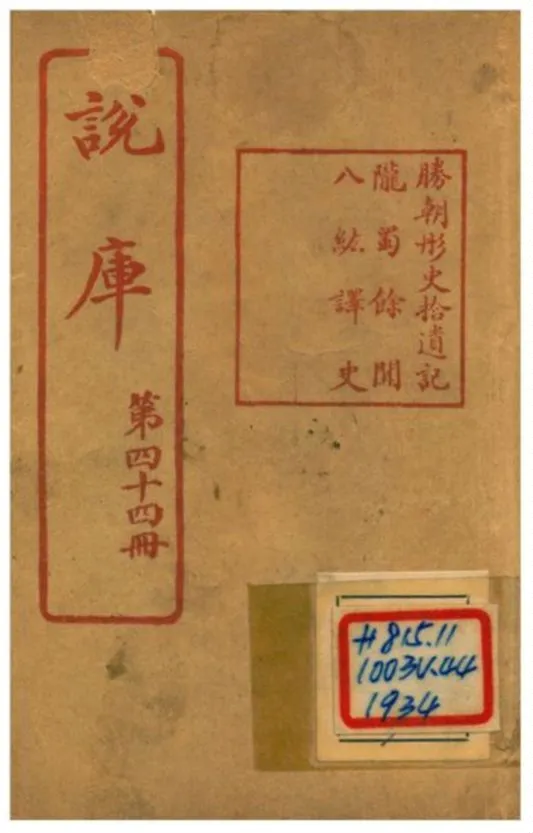 說庫
第四十四冊
勝朝彤史拾遺記
隴蜀餘聞
八紘譯史
H815.11
1003V.44
1934